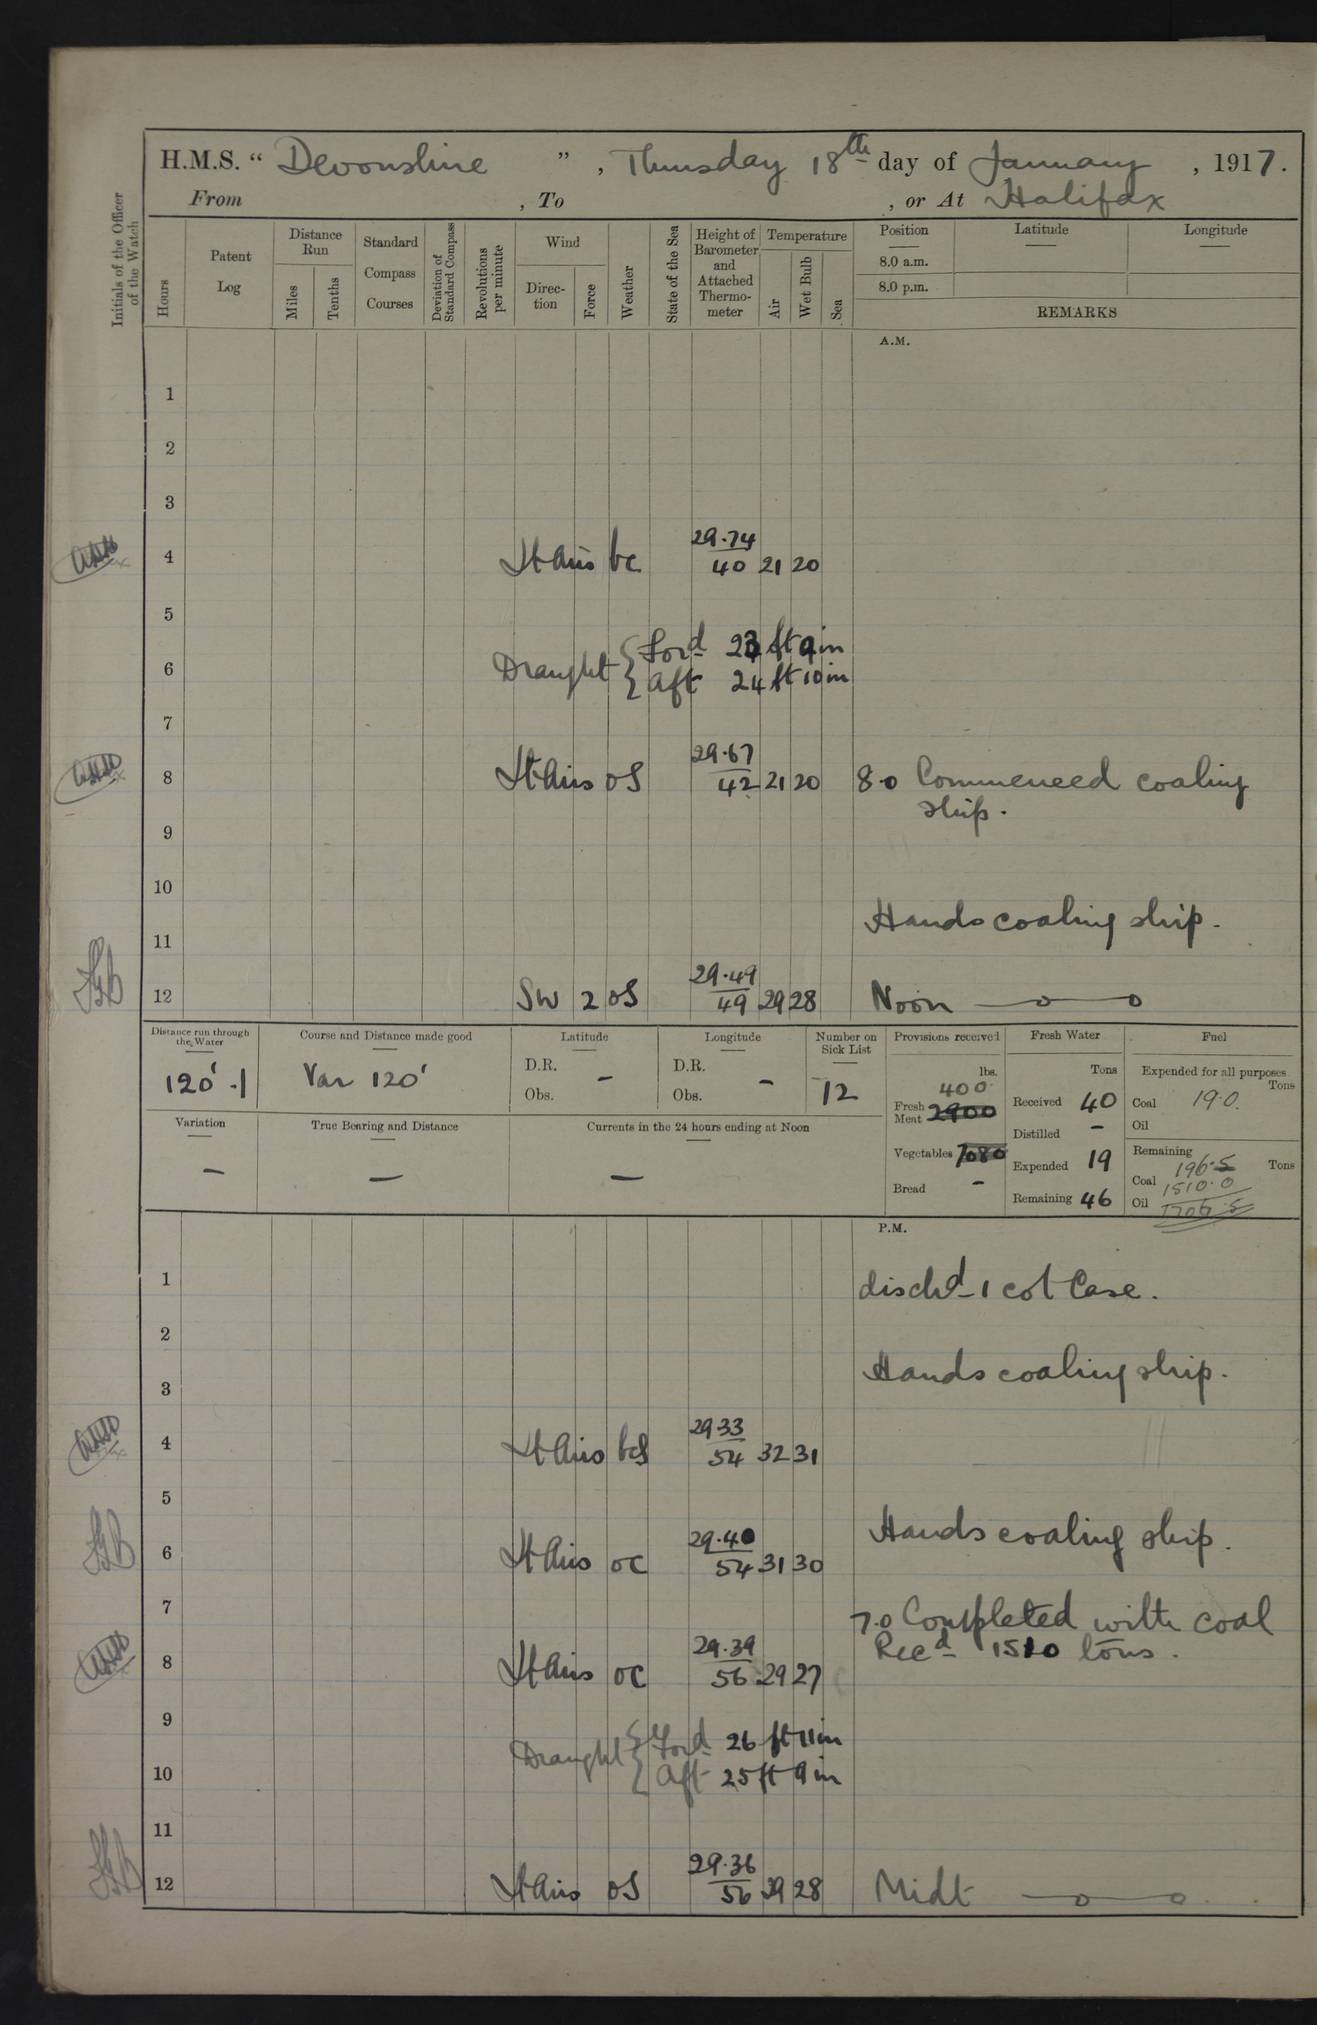 H.M.S. “ Devonshire ” , Thursday 18th day of January , 1917.
From , To , or At Halifax
Initials of the Officer of the Watch
Hours
Patent Log
Distance Run
Miles
Tenths
Standard Compass Courses
Deviation of Standard Compass
Revolutions per minute
Wind
Direc-tion
Force
Weather
State of the Sea
Height of Barometer and Attached Thermo-meter
Temperature
Air
Wet Bulb
Sea
Position
8.0 a.m.
8.0 p.m.
Latitude
Longitude
REMARKS
A.M.
1
2
3
4 Lt airs bc 29.74 40 21 20
5
Draught { Ford 23 ft 9 in
6 { aft 24 ft 10 in
7
8 Lt airs os 29.67 42 21 20 8.0 Commenced coaling
ship.
9
10
Hands coaling ship.
11
12 SW 2 os 29.49 49 29 28 Noon
Distance run through the Water
120' .1
Course and Distance made good
Var 120'
Latitude
D.R. –
Obs.
Longitude
D.R. –
Obs.
Number on Sick List
12
Provisions received
lbs.
400
Fresh Meat 2900
Vegetables 7080
Bread –
Fresh Water
Tons
Received 40
Distilled –
Expended 19
Remaining 46
Fuel
Expended for all purposes
Tons
Coal 19.0.
Oil
Remaining
Tons
196.5
Coal 1510.0
Oil 1706.5
Variation
–
True Bearing and Distance
–
Currents in the 24 hours ending at Noon
–
P.M.
1 dischd 1 cot Case.
2
Hands coaling ship.
3
4 Lt airs bcs 29 33 54 32 31
5
Hands coaling ship.
6 Lt airs oc 29.40 54 31 30
7 7.0 Completed with coal
Recd 1510 tons.
8 Lt airs oc 29.39 56 29 27
9
Draught { Ford 26 ft 11 in
10 { aft 25 ft 9 in
11
12 Lt airs os 29.36 56 29 28 Midt